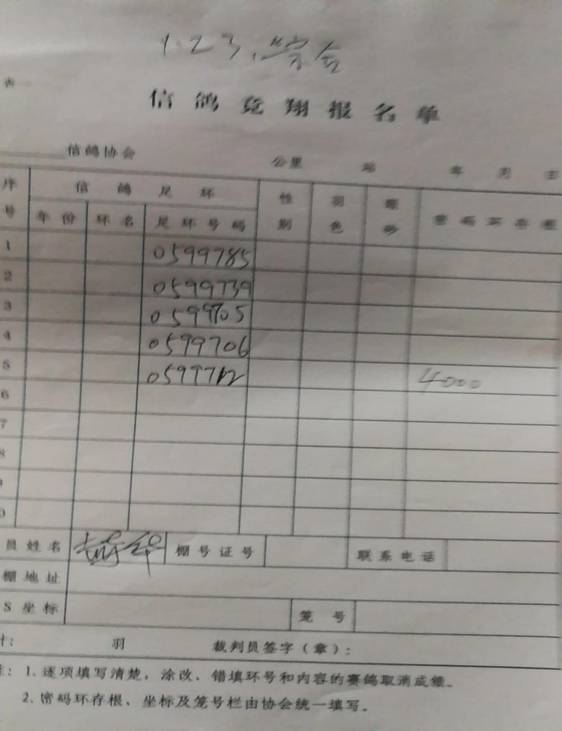 1.2.3.综合
表
信鸽竞翔报名单
信鸽协会 公里 站 年 月 日
序号 信鸽足环 性别 羽色
年份 环名 足环号码
1 0599785
2 0599739
3 0599705
4 0599706
5 0599712 4000
6
7
8
9
0
员姓名 棚号证号 联系电话
棚地址
S坐标 笼号
计: 羽 裁判员签字(章):
注: 1.逐项填写清楚,涂改、错填环号和内容的赛鸽取消成绩。
2.密码环存根、坐标及笼号栏由协会统一填写。